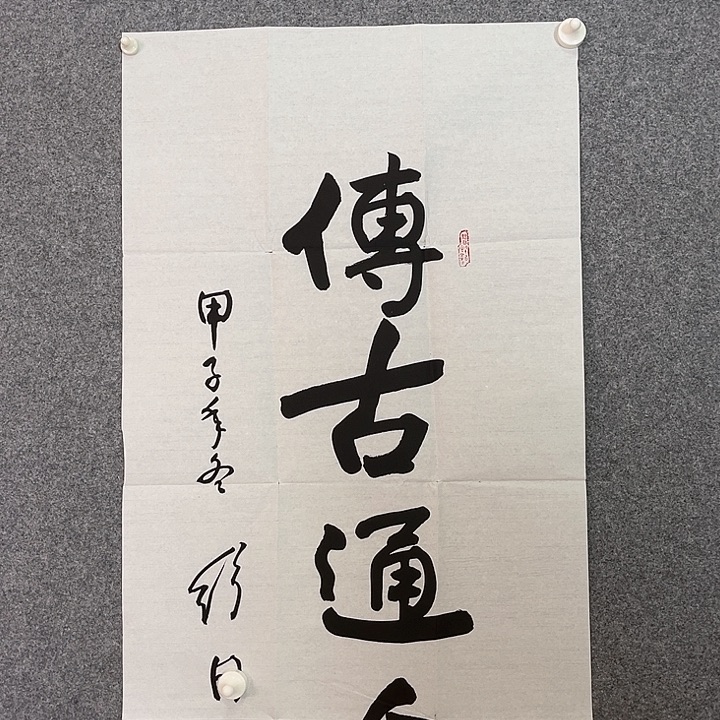 傳古通
甲子年冬